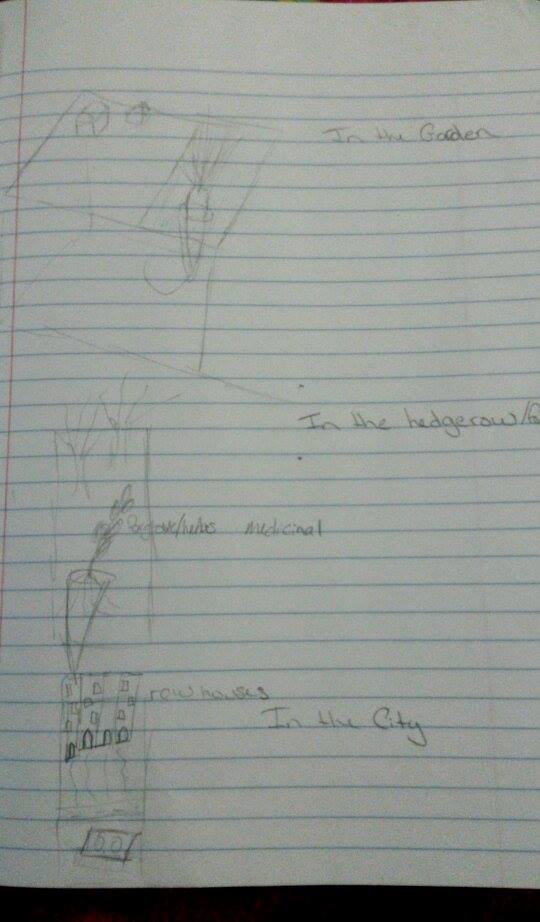 In the Garden
In the hedgerow/
medicinal
row houses
In the City